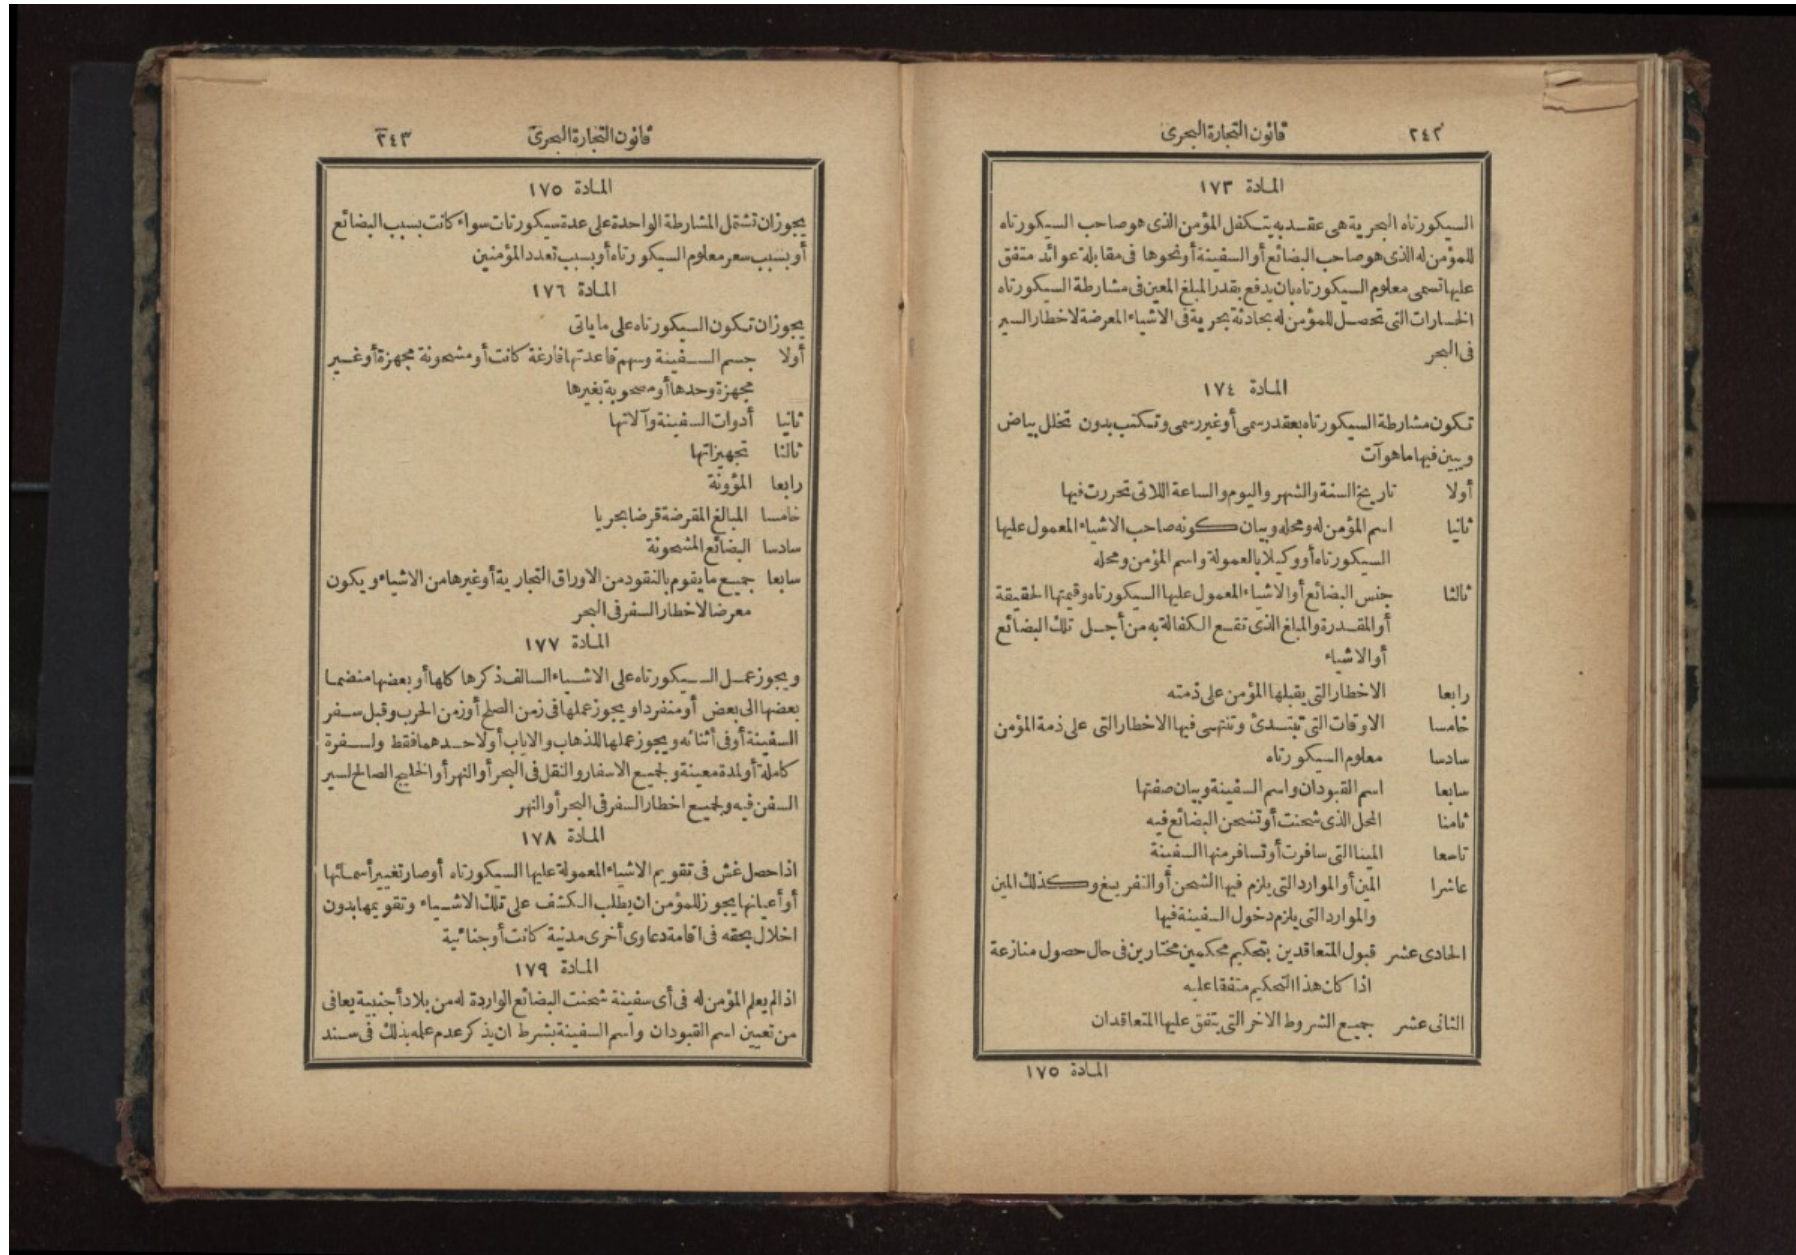 ٢٤٢
قانون التجارة البحرى
المادة ١٧٣
السيكورتاه البحرية هى عقد به يتكفل المؤمن الذى هو صاحب السيكورتاه
للمؤمن له الذى هو صاحب البضائع أو السفينة أو نحوها فى مقابلة عوائد متفق
عليها تسمى معلوم السيكورتاه بان يدفع بقدر المبلغ المعين فى مشارطة السيكورتاه
الخسارات التى تحصل للمؤمن له بحادثة بحرية فى الاشياء المعرضة لاخطار السير
فى البحر
المادة ١٧٤
تكون مشارطة السيكورتاه بعقد رسمى أو غير رسمى وتكتب بدون تخلل بياض
ويبين فيها ما هو آت
أولا تاريخ السنة والشهر واليوم والساعة اللاتى تحررت فيها
ثانيا اسم المؤمن له ومحله وبيان كونه صاحب الاشياء المعمول عليها
السيكورتاه أو وكيلا بالعمولة واسم المؤمن ومحله
ثالثا جنس البضائع أو الاشياء المعمول عليها السيكورتاه وقيمتها الحقيقة
أو المقدرة والمبلغ الذى تقع الكفالة به من أجل تلك البضائع
أو الاشياء
رابعا الاخطار التى يقبلها المؤمن على ذمته
خامسا الاوقات التى تبتدئ وتنتهى فيها الاخطار التى على ذمة المؤمن
سادسا معلوم السيكورتاه
سابعا اسم القبودان واسم السفينة وبيان صفتها
ثامنا المحل الذى شحنت أو تشحن البضائع فيه
تاسعا المينا التى سافرت أو تسافر منها السفينة
عاشرا المين أو الموارد التى يلزم فيها الشحن أو التفريغ وكذلك المين
والموارد التى يلزم دخول السفينة فيها
الحادى عشر قبول المتعاقدين بتحكيم محكمين مختارين فى حال حصول منازعة
اذا كان هذا التحكيم متفقا عليه
الثانى عشر جميع الشروط الاخر التى يتفق عليها المتعاقدان
المادة ١٧٥
قانون التجارة البحرى
٢٤٣
المادة ١٧٥
يجوز ان تشتمل المشارطة الواحدة على عدة سيكورتات سواء كانت بسبب البضائع
أو بسبب سعر معلوم السيكورتاه أو بسبب تعدد المؤمنين
المادة ١٧٦
يجوز ان تكون السيكورتاه على ما ياتى
أولا جسم السفينة وسهم قاعدتها فارغة كانت أو مشحونة مجهزة أو غير
مجهزة وحدها أو مصحوبة بغيرها
ثانيا أدوات السفينة وآلاتها
ثالثا تجهيزاتها
رابعا المؤونة
خامسا المبالغ المقرضة قرضا بحريا
سادسا البضائع المشحونة
سابعا جميع ما يقوم بالنقود من الاوراق التجارية أو غيرها من الاشياء ويكون
معرضا لاخطار السفر فى البحر
المادة ١٧٧
ويجوز عمل السيكورتاه على الاشياء السالف ذكرها كلها أو بعضها منضما
بعضها الى بعض أو منفردا ويجوز عملها فى زمن الصلح أو زمن الحرب وقبل سفر
السفينة أو فى أثنائه ويجوز عملها للذهاب والاياب أو لاحدهما فقط ولسفرة
كاملة أو لمدة معينة ولجميع الاسفار والنقل فى البحر أو النهر أو الخليج الصالح لسير
السفن فيه ولجميع اخطار السفر فى البحر أو النهر
المادة ١٧٨
اذا حصل غش فى تقويم الاشياء المعمولة عليها السيكورتاه أو صار تغيير أسمائها
أو أعيانها يجوز للمؤمن ان يطلب الكشف على تلك الاشياء وتقويمها بدون
اخلال بحقه فى اقامة دعاوى أخرى مدنية كانت أو جنائية
المادة ١٧٩
اذا لم يعلم المؤمن له فى أى سفينة شحنت البضائع الواردة له من بلاد أجنبية يعافى
من تعيين اسم القبودان واسم السفينة بشرط ان يذكر عدم علمه بذلك فى سند